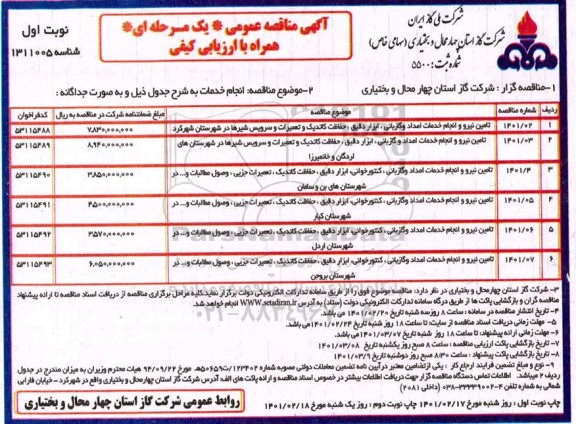 شرکت ملی گاز ایران
شرکت گاز استان چهارمحال و بختیاری (سهامی خاص)
شماره ثبت: ۵۵۰۰
آگهی مناقصه عمومی * یک مرحله ای*
همراه با ارزیابی کیفی
نوبت اول
شناسه ۱۳۱۱۰۰۵
۱-مناقصه گزار : شرکت گاز استان چهار محال و بختیاری
۲-موضوع مناقصه: انجام خدمات به شرح جدول ذیل و به صورت جداگانه :
ردیف شماره مناقصه موضوع مناقصه مبلغ ضمانتنامه شرکت در مناقصه به ریال کدفراخوان
۱ ۱۴۰۱/۰۲ تامین نیرو و انجام خدمات امداد وگازبانی ، ابزار دقیق ، حفاظت کاتدیک و تعمیرات و سرویس شیرها در شهرستان شهرکرد ۷،۸۳۰،۰۰۰،۰۰۰ ۵۳۱۱۵۴۸۸
۲ ۱۴۰۱/۰۳ تامین نیرو و انجام خدمات امداد وگازبانی ، ابزار دقیق ، حفاظت کاتدیک و تعمیرات و سرویس شیرها در شهرستان های
لردگان و خانمیرزا ۸،۹۴۰،۰۰۰،۰۰۰ ۵۳۱۱۵۴۸۹
۳ ۱۴۰۱/۴ تامین نیرو و انجام خدمات امداد وگازبانی ، کنتورخوانی، ابزار دقیق ، حفاظت کاتدیک ، تعمیرات جزیی ، وصول مطالبات و... در
شهرستان های بن و سامان ۳۸۵۰،۰۰۰،۰۰۰ ۵۳۱۱۵۴۹۰
۴ ۱۴۰۱/۰۵ تامین نیرو و انجام خدمات امداد وگازبانی ، کنتورخوانی، ابزار دقیق ، حفاظت کاتدیک ، تعمیرات جزیی ، وصول مطالبات و... در
شهرستان کیار ۴۵۰۰،۰۰۰،۰۰۰ ۵۳۱۱۵۴۹۱
۵ ۱۴۰۱/۰۶ تامین نیرو و انجام خدمات امداد وگازبانی ، کنتورخوانی، ابزار دقیق ، حفاظت کاتدیک ، تعمیرات جزیی ، وصول مطالبات و... در
شهرستان اردل ۳۵۷۰،۰۰۰،۰۰۰ ۵۳۱۱۵۴۹۲
۶ ۱۴۰۱/۰۷ تامین نیرو و انجام خدمات امداد وگازبانی ، کنتورخوانی، ابزار دقیق ، حفاظت کاتدیک ، تعمیرات جزیی ، وصول مطالبات و... در
شهرستان بروجن ۶،۰۵۰،۰۰۰،۰۰۰ ۵۳۱۱۵۴۹۳
۳- شرکت گاز استان چهارمحال و بختیاری در نظر دارد: مناقصه موضوع فوق را از طریق سامانه تدارکات الکترونیکی دولت برگزار نماید.کلیه مراحل برگزاری مناقصه از دریافت اسناد مناقصه تا ارائه پیشنهاد
مناقصه گران و بازگشایی پاکت ها از طریق درگاه سامانه تدارکات الکترونیکی دولت (ستاد) به آدرس www.setadiran.ir انجام خواهد شد.
۴- تاریخ انتشار مناقصه در سامانه : ساعت ۸ روز سه شنبه تاریخ ۱۴۰۱/۰۲/۲۰ می باشد.
۵- مهلت زمانی دریافت اسناد مناقصه از سایت: تا ساعت ۱۸ روز شنبه تاریخ ۱۴۰۱/۰۲/۲۴ می باشد.
۶- مهلت زمانی ارائه پیشنهاد: تا ساعت ۱۸ روز شنبه مورخ ۱۴۰۱/۰۳/۰۷
۷- تاریخ بازگشایی پاکت ارزیابی مناقصه : ساعت ۸ صبح روز یکشنبه تاریخ ۱۴۰۱/۳/۸
۸- تاریخ بازگشایی پاکت پیشنهاد : ساعت ۸:۳۰ صبح روز دوشنبه تاریخ ۱۴۰۱/۳/۹
۹- نوع و مبلغ تضمین فرایند ارجاع کار : یکی ازتضامین معتبر در آیین نامه تضمین معاملات دولتی مصوبه شماره ۱۲۳۴۰۲/ت۵۰۶۵۹ه مورخ ۹۴/۰۹/۲۲ هیات محترم وزیران به میزان مندرج در جدول
ردیف ۲ میباشد. اطلاعات تماس دستگاه مناقصه گزار جهت دریافت اطلاعات بیشتر در خصوص اسناد مناقصه و ارائه پاکت های الف: آدرس شرکت گاز استان چهارمحال و بختیاری واقع در شهرکرد - خیابان فارابی
شمالی به شماره تلفن ۴-۳۳۳۳۹۰۰۲-۰۳۸ (داخلی ۲۰۸۱)
چاپ نوبت اول : روز شنبه مورخ ۱۴۰۱/۰۲/۱۷ چاپ نوبت دوم : روز یک شنبه مورخ ۱۴۰۱/۰۲/۱۸
روابط عمومی شرکت گاز استان چهار محال و بختیاری